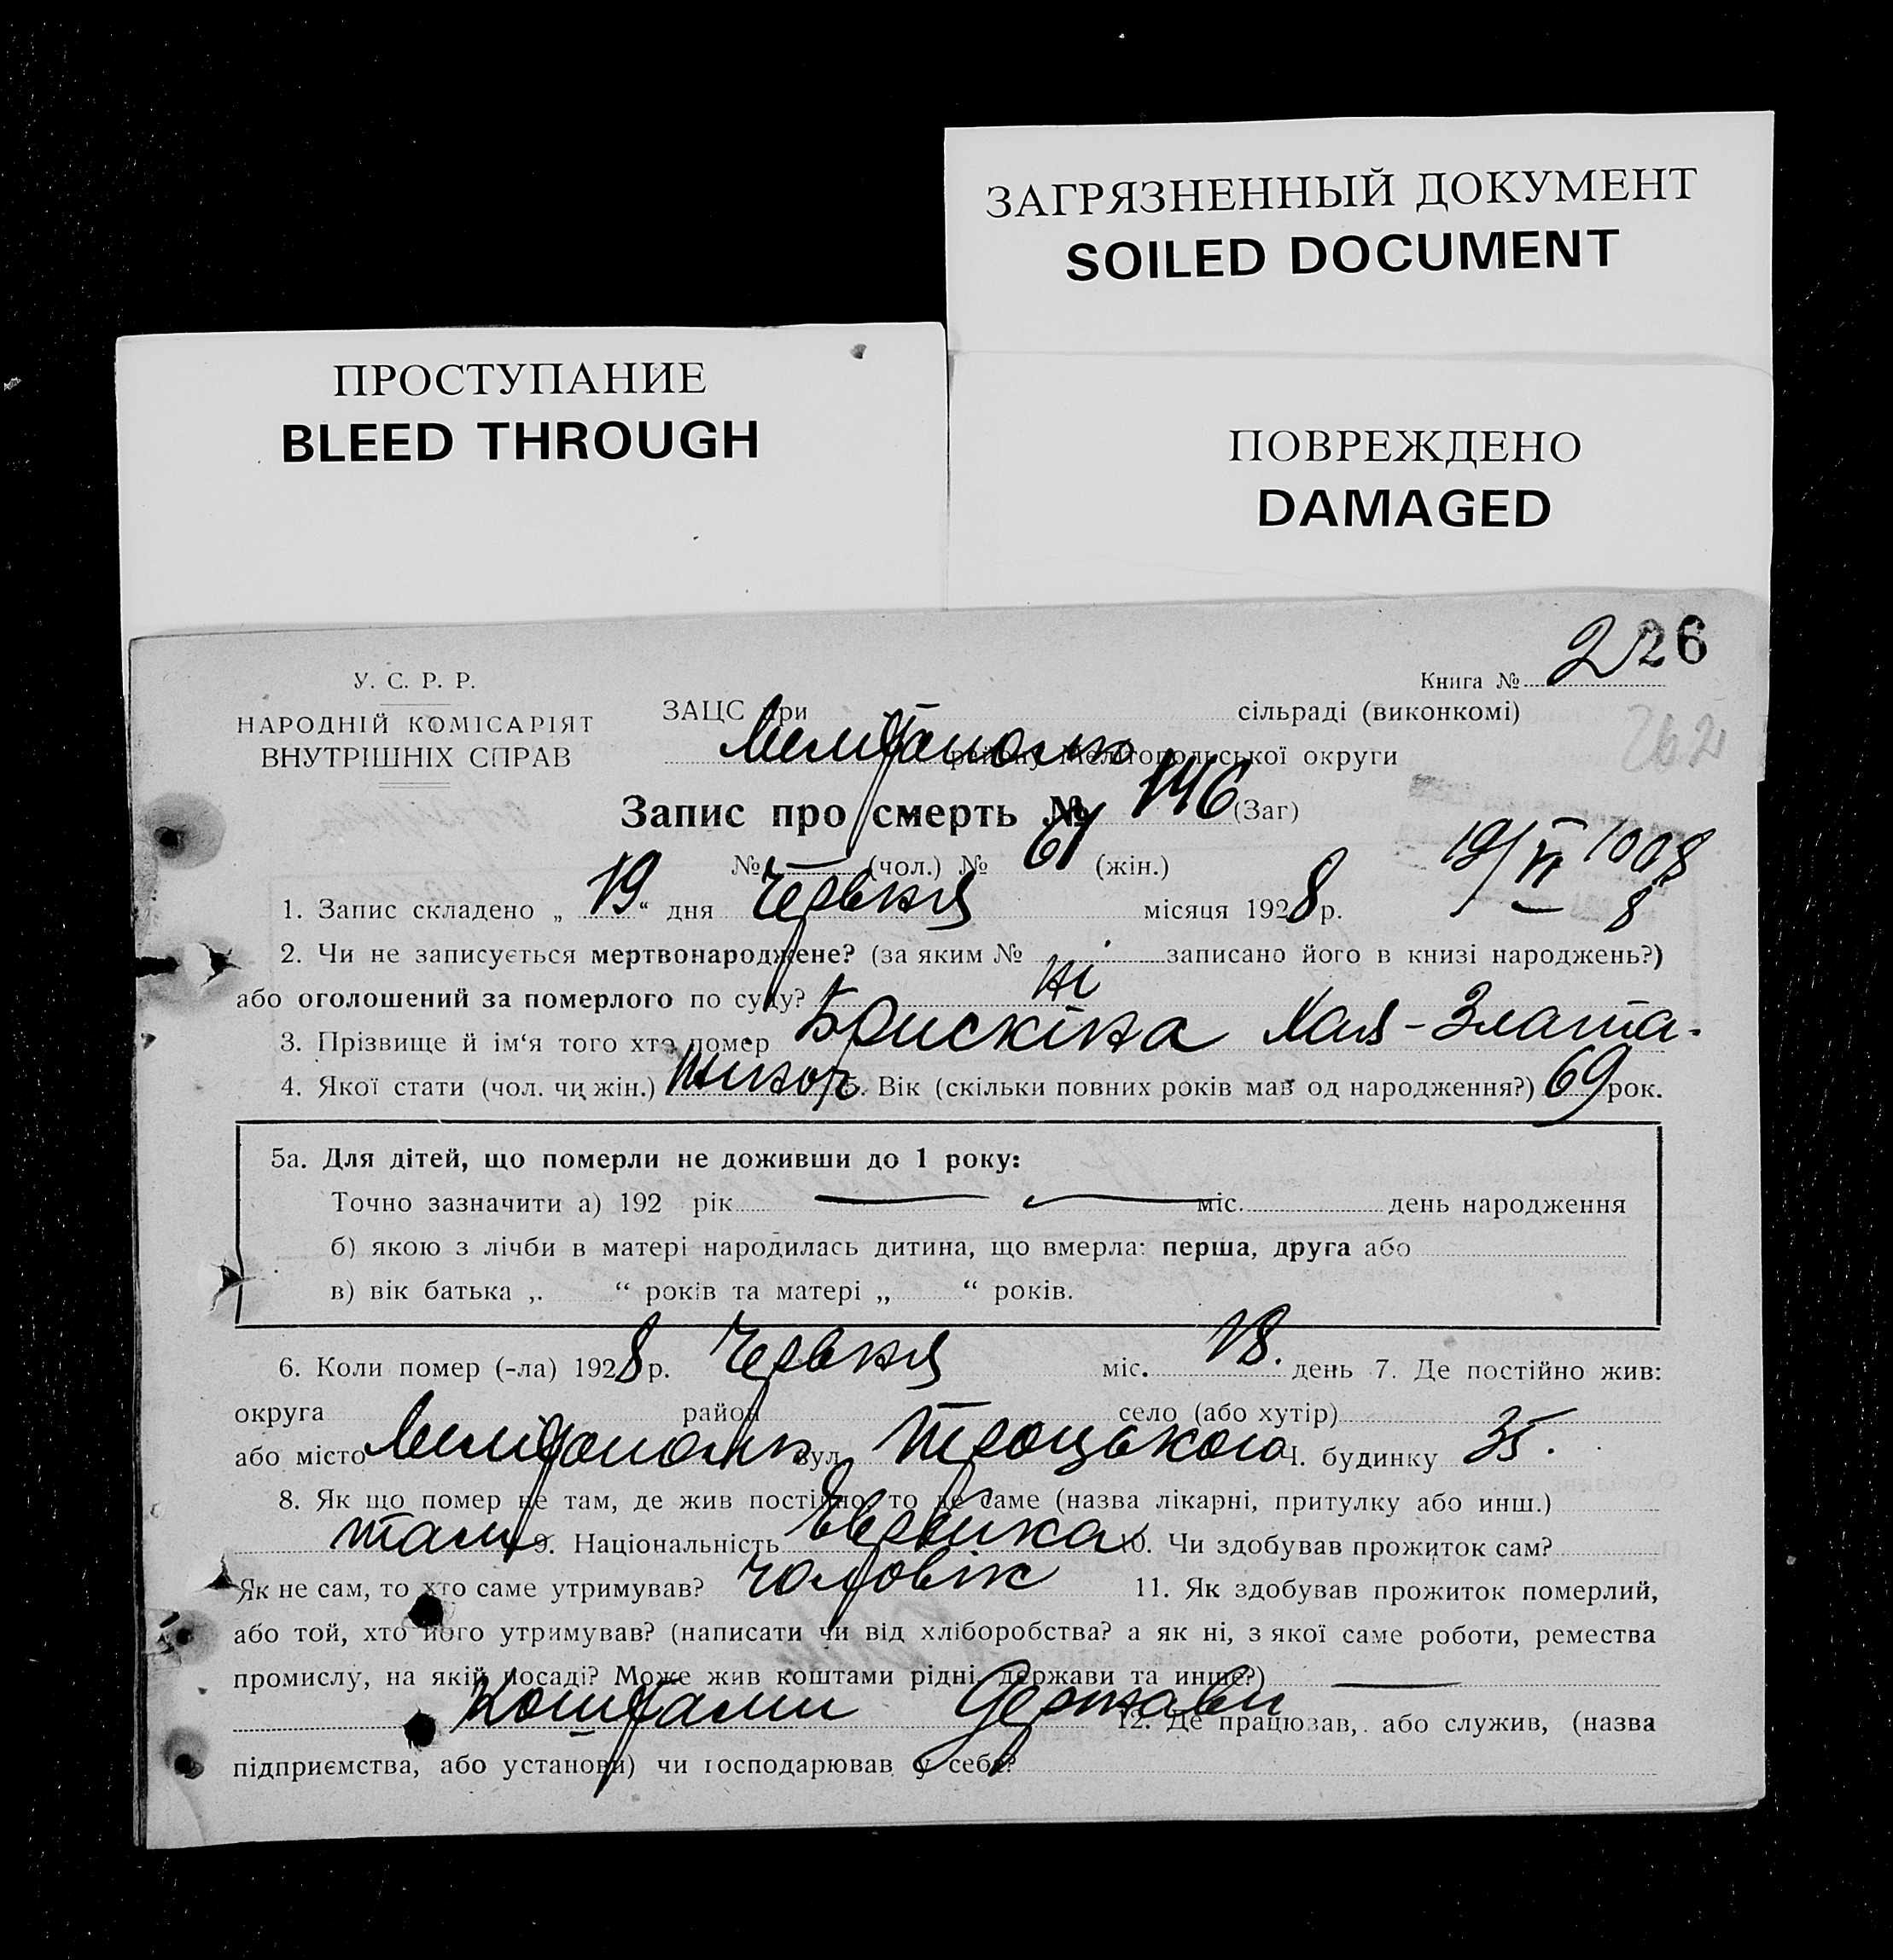 ЗАГРЯЗНЕННЫЙ ДОКУМЕНТ
SOILED DOCUMENT
ПРОСТУПАНИЕ
BLEED THROUGH
ПОВРЕЖДЕНО
DAMAGED
Книга № 2 26
262
У. С. Р. Р.
НАРОДНІЙ КОМІСАРІЯТ
ВНУТРІШНІХ СПРАВ
ЗАЦС при сільраді (виконкомі)
району Мелітопольської округи
Запис про смерть № 146 (Заг)
№ — (чол.) № 61 (жін.)
1. Запис складено „ 19 “ дня Червня місяця 1928 р.
2. Чи не записується мертвонароджене? (за яким № записано його в книзі народжень?)
або оголошений за померлого по суду? ні
3. Прізвище й ім‘я того хто помер Брискіна Хая-Злата.
4. Якої стати (чол. чи жін.) жіноч 5. Вік (скільки повних років мав од народження?) 69 рок.
5а. Для дітей, що померли не доживши до 1 року:
Точно зазначити а) 192 рік — — міс. день народження
б) якою з лічби в матері народилась дитина, що вмерла: перша, друга або
в) вік батька „ “ років та матері „ “ років.
6. Коли помер (-ла) 1928 р. Червня міс. 18. день 7. Де постійно жив:
округа район село (або хутір)
або місто Мелітополь вул. Троцького Ч. будинку 35.
8. Як що помер не там, де жив постійно, то де саме (назва лікарні, притулку або инш.)
там 9. Національність Еврейка 10. Чи здобував прожиток сам?
Як не сам, то хто саме утримував? чоловік 11. Як здобував прожиток померлий,
або той, хто його утримував? (написати чи від хліборобства? а як ні, з якої саме роботи, ремества
промислу, на якій посаді? Може жив коштами рідні, держави та инше?) —
Коштами Держави 12. Де працював, або служив, (назва
підприємства, або установи) чи господарював у себе?